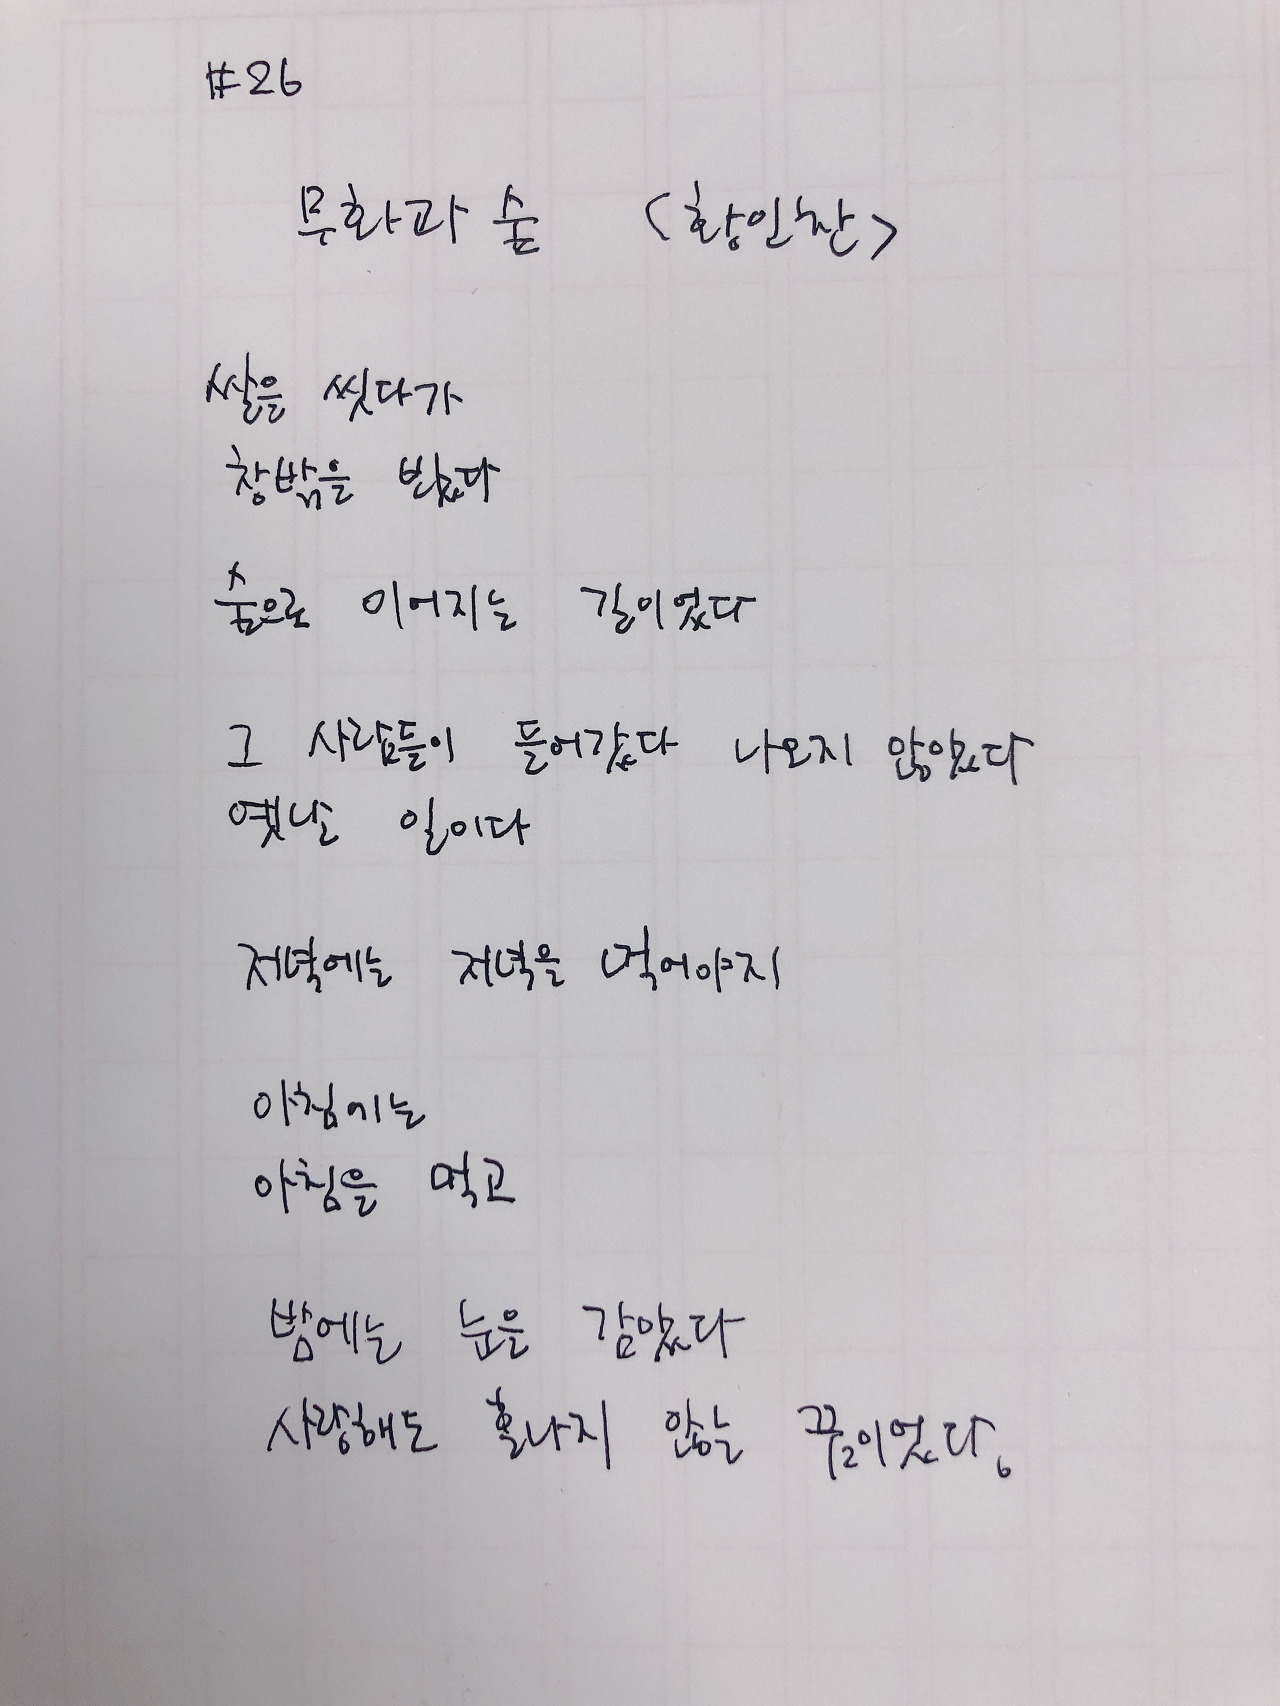 #26
무화과 숲 <황인찬>
쌀을 씻다가
창밖을 봤다
숲으로 이어지는 길이었다
그 사람들이 들어갔다 나오지 않았다
옛날 일이다
저녁에는 저녁을 먹어야지
아침에는
아침을 먹고
밤에는 눈을 감았다
사랑해도 혼나지 않는 꿈이었다.